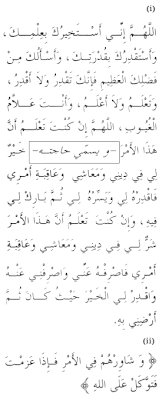 (i)
اللَّهُمَّ إِنِّي أَسْتَخِيرُكَ بِعِلْمِكَ،
وَأَسْتَقْدِرُكَ بِقُدْرَتِكَ، وَأَسْأَلُكَ مِنْ
فَضْلِكَ العَظِيمِ فَإِنَّكَ تَقْدِرُ وَلَا أَقْدِرُ،
وَتَعْلَمُ وَلَا أَعْلَمُ، وَأَنْتَ عَلَّامُ
الْغُيُوبِ، اللَّهُمَّ إِنْ كُنْتَ تَعْلَمُ أَنَّ
هَذَا الأَمْرَ -و يسمّى حاجته- خَيْرٌ
لِي فِي دِينِي وَمَعَاشِي وَعَاقِبَةِ أَمْرِي
فَاقْدِرْهُ لِي وَيَسِّرْهُ لِي ثُمَّ بَارِكْ لِي
فِيهِ، وَإِنْ كُنْتَ تَعْلَمُ أَنَّ هَذَا الأَمْرَ
شَرٌّ لِي فِي دِينِي وَمَعَاشِي وَعَاقِبَةِ
أَمْرِي فَاصْرِفْهُ عَنِّي وَاصْرِفْنِي عَنْهُ
وَاقْدِرْ لِي الْخَيْرَ حَيْثُ كَانَ ثُمَّ
أَرْضِنِي بِهِ.
(ii)
﴿ وَ شَاوِرْهُمْ فِي الأَمْرِ فَإِذَا عَزَمْتَ
فَتَوَكَّلْ عَلَى اللهِ ﴾